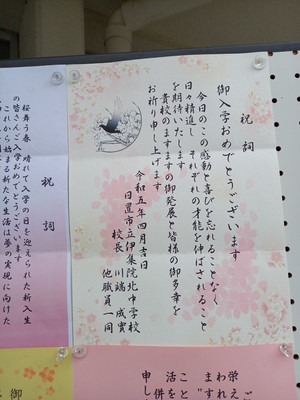 祝詞
御入学おめでとうございます
今日のこの感動と喜びを忘れることなく
日々精進し それぞれの才能を伸ばされること
を期待いたします
貴校のますますの御発展と皆様の御多幸を
お祈り申し上げます
令和五年四月吉日
日置市立伊集院北中学校
校長 川端成實
他職員一同
祝詞
桜舞う春 晴れて入学の日を迎えられた新入生
の皆さんご入学おめでとうございます
これから始まる新たな生活は夢の実現に向けた